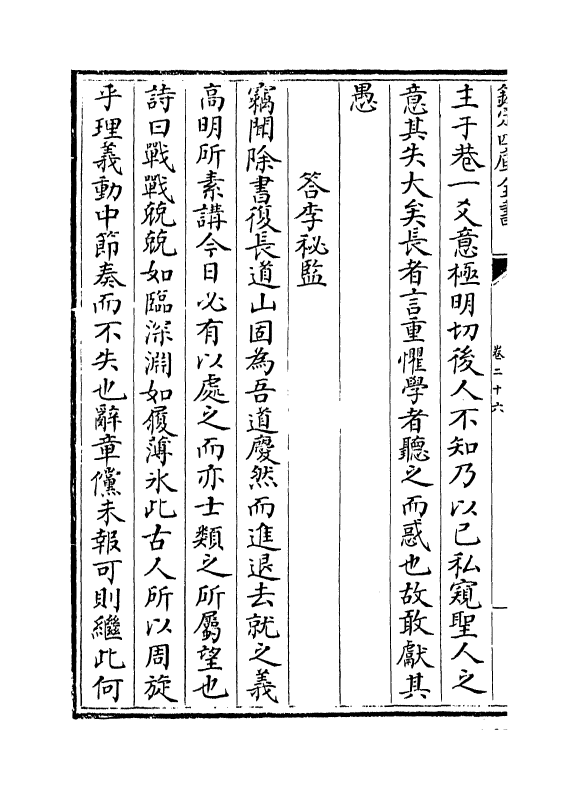 欽定四庫全書
卷二十六
主于巷一爻意極明切後人不知乃以已私窺聖人之
意其失大矣長者言重懼學者聽之而惑也故敢獻其
愚
答李祕監
竊聞除書復長道山固為吾道慶然而進退去就之義
高明所素講今日必有以處之而亦士類之所屬望也
詩曰戰戰兢兢如臨深淵如履薄氷此古人所以周旋
乎理義動中節奏而不失也辭章儻未報可則繼此何